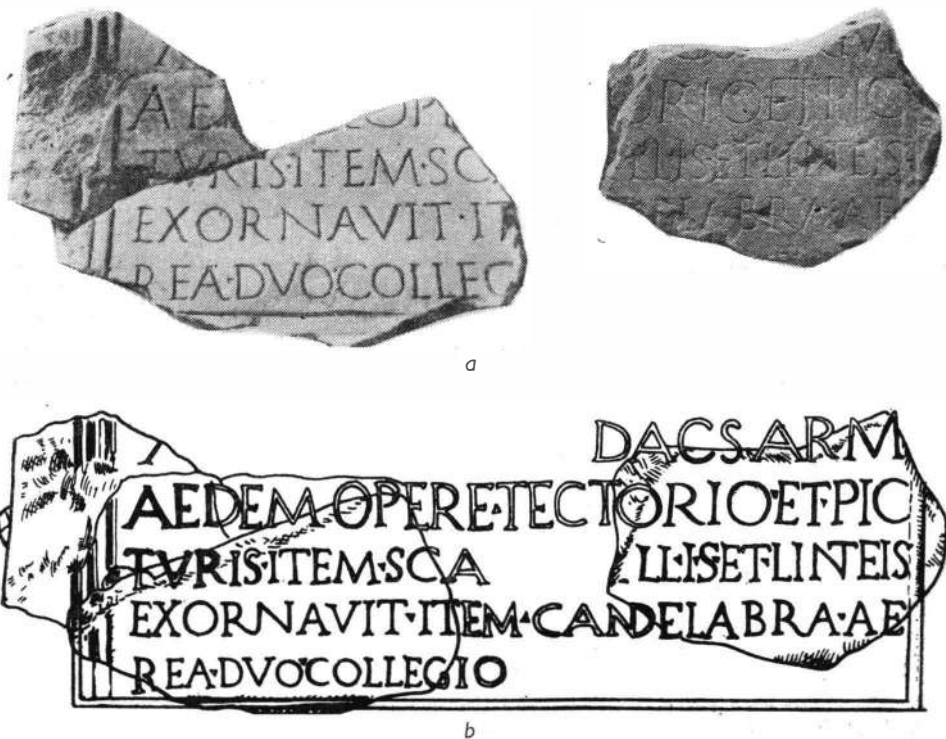 AE OPE
TVRIS·ITEM·SC
EXORNAVIT·IT
REA·DVO·COLLEG
ORIO·ET·PIC
LLIS·ET·LINTEIS
ELABRA·AE
a
DACS ARM
AEDEM·OPERE·TECTORIO·ET·PIC
TVRIS·ITEM·SCA LLIS·ET·LINTEIS
EXORNAVIT·ITEM·CANDELABRA·AE
REA·DVO·COLLEGIO
b